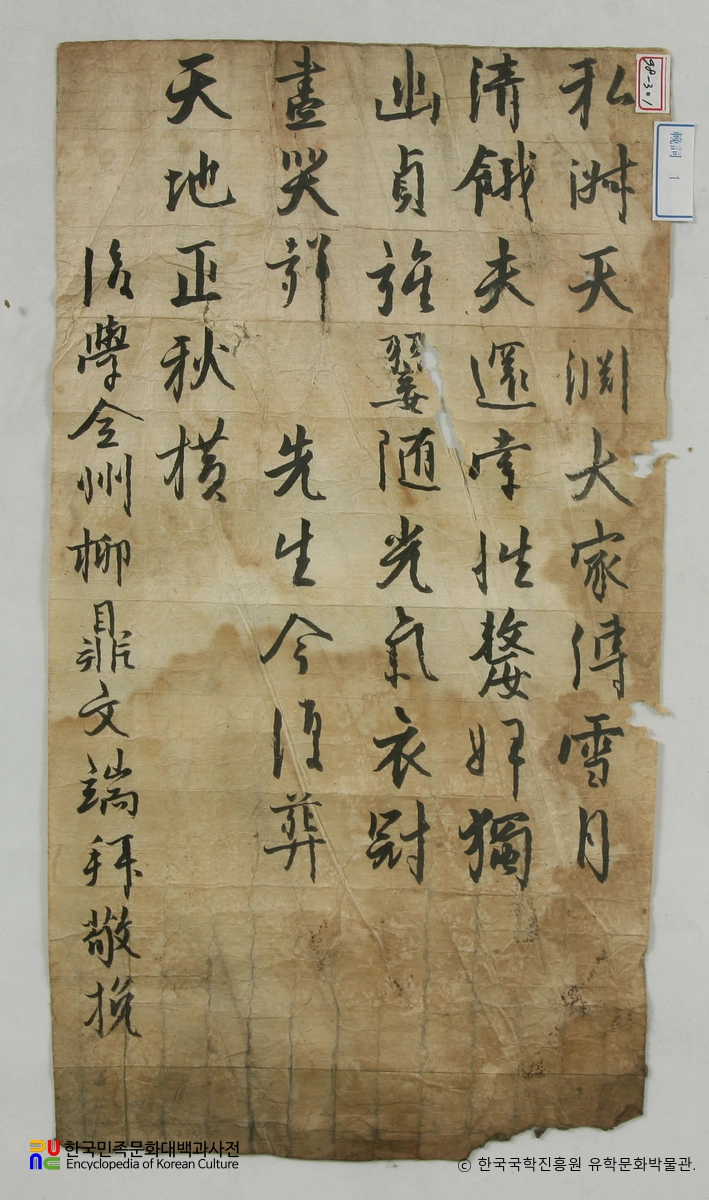 私淑天淵大家傳雪月
清餓夫還性嫠婦獨
幽貞旌翣随光氣衣冠
盡哭聲　先生今復葬
天地正秋橫
後學全州柳鼎文端拜敬挽
98-301
輓詞 1
한국민족문화대백과사전
Encyclopedia of Korean Culture
© 한국국학진흥원 유학문화박물관.